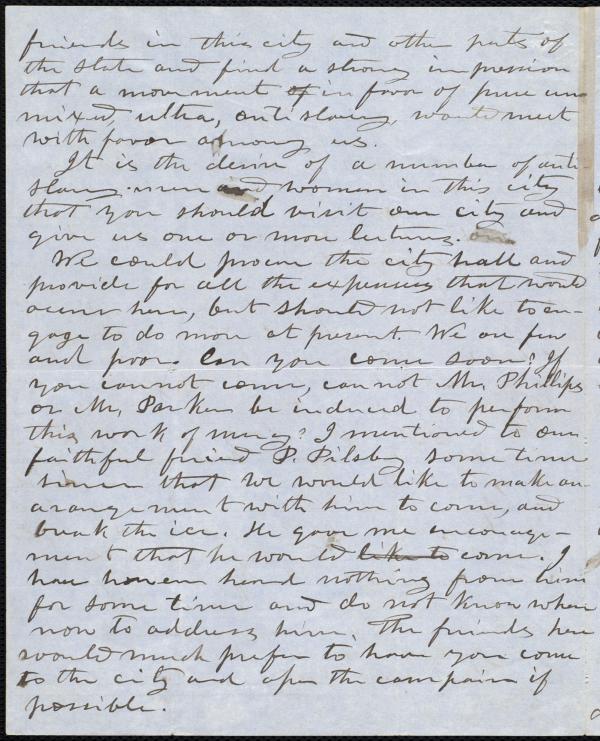 friends in this city and other parts of
the State and find a strong impression
that a movement of in favor of pure un
mixed, ultra, anti slavery, would meet
with favor among us.
It is the desire of a number of anti-
slavery men and women in this city
that you should visit our city and
give us one or more lectures.
We could procure the city hall and
provide for all the expenses that would
occur here, but should not like to en-
gage to do more at present. We are few
and poor. Can you come soon? If
you cannot come, can not Mr. Phillips
or Mr. Parker be induced to perform
this work of mercy? I mentioned to our
faithful friend P. Pilsbury some time
since that we would like to make an
arangement with him to come, and
break the ice. He gave me encourage-
ment that he would like to come. I
have however heard nothing from him
for some time and do not know where
now to address him. The friends here
would much prefer to have you come
to the city and open the campain if
possible.